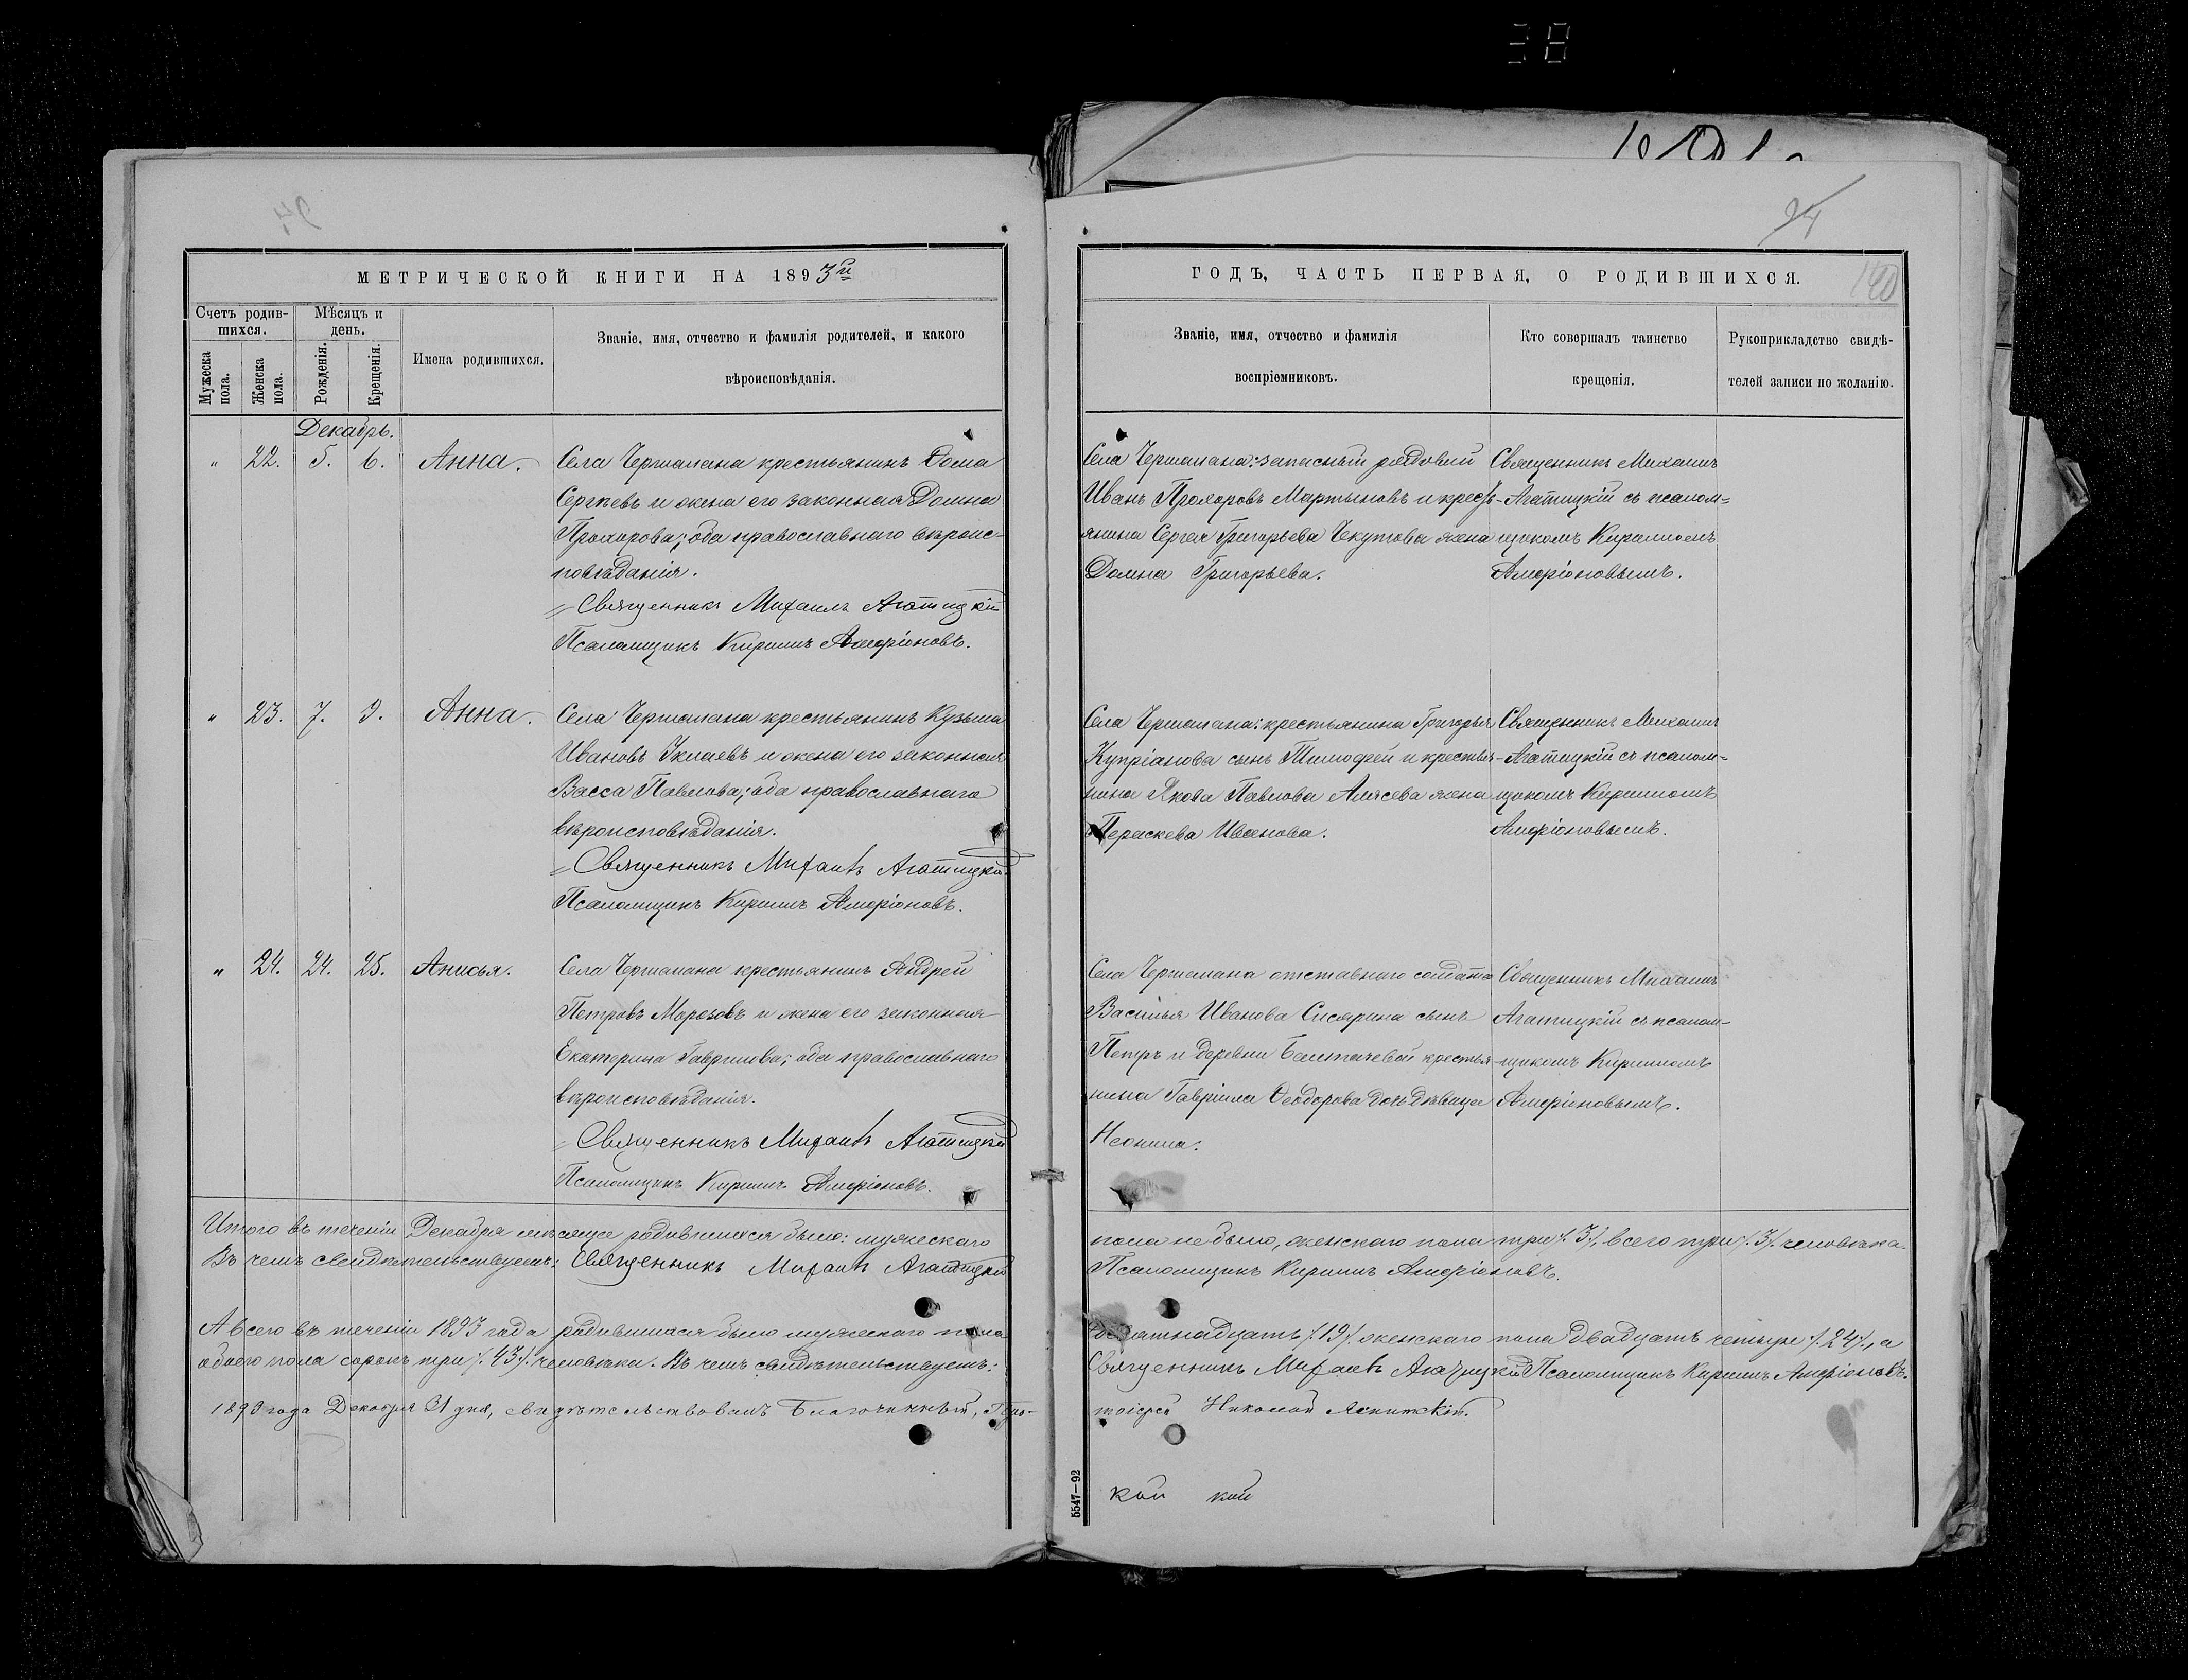 38
94
МЕТРИЧЕСКОЙ КНИГИ НА 1893й
Счетъ родив-
шихся.
Мѣсяцъ и
день.
Мужеска
пола.
Женска
пола.
Рожденія.
Крещенія.
Имена родившихся.
Званіе, имя, отчество и фамилія родителей, и какого
вѣроисповѣданія.
Декабрь.
" 22. 5. 6. Анна. Села Чермалана крестьянинъ Ѳома
Сергѣевъ и жена его законная Домна
Прохорова; оба православнаго вѣроис-
повѣданія.
Священникъ Михаилъ Агатицкій
Псаломщикъ Кириллъ Аморіоновъ.
" 23. 7. 9. Анна. Села Чермалана крестьянинъ Кузьма
Ивановъ Уклаевъ и жена его законная
Васса Павлова; оба православнаго
вѣроисповѣданія.
Священникъ Михаилъ Агатицкій
Псаломщикъ Кириллъ Аморіоновъ.
" 24. 24. 25. Анисья. Села Чермалана крестьянинъ Андрей
Петровъ Морозовъ и жена его законная
Екатерина Гаврилова; оба православнаго
вѣроисповѣданія.
Священникъ Михаилъ Агатицкій
Псаломщикъ Кириллъ Аморіоновъ.
Итого въ теченіи Декабря мѣсяца родившихся было: мужескаго
Въ чемъ свидѣтельствуемъ: Священникъ Михаилъ Агатицкій
А всего въ теченіи 1893 года родившихся было мужескаго пола
обоего пола сорокъ три /.43/. человѣка. Въ чемъ свидѣтельствуемъ:
1893 года Декабря 31 дня, свидѣтельствовалъ Благочинный, Про-
94
140
ГОДЪ, ЧАСТЬ ПЕРВАЯ, О РОДИВШИХСЯ.
Званіе, имя, отчество и фамилія
воспріемниковъ.
Кто совершалъ таинство
крещенія.
Рукоприкладство свидѣ-
телей записи по желанію.
Села Чермалана: запасный рядовой Священникъ Михаилъ
Иванъ Прохоровъ Мартыновъ и кресть- Агатицкій съ псалом=
янина Сергея Григорьева Чекутова жена щикомъ Кирилломъ
Домна Григорьева. Аморіоновымъ.
Села Чермалана: крестьянина Григорья Священникъ Михаилъ
Купріанова сынъ Тимофей и крестья- Агатицкій съ псалом=
нина Якова Павлова Алясева жена щикомъ Кирилломъ
Пераскева Иванова. Аморіоновымъ.
Села Чермалана отставного солдата Священникъ Михаилъ
Василья Иванова Сисярина сынъ Агатицкій съ псалом-
Петръ и деревни Балтачевой крестья- щикомъ Кирилломъ
нина Гавріила Ѳеодорова дочь дѣвица Аморіоновымъ.
Неонила.
пола не было, женскаго пола три /.3/., всего три /.3/. человѣка.
Псаломщикъ Кириллъ Аморіоновъ.
девятнадцать /.19/. женскаго пола двадцать четыре /.24/., а
Священникъ Михаилъ Агатицкій Псаломщикъ Кириллъ Аморіоновъ.
тоіерей Николай
кой кой
5547—92